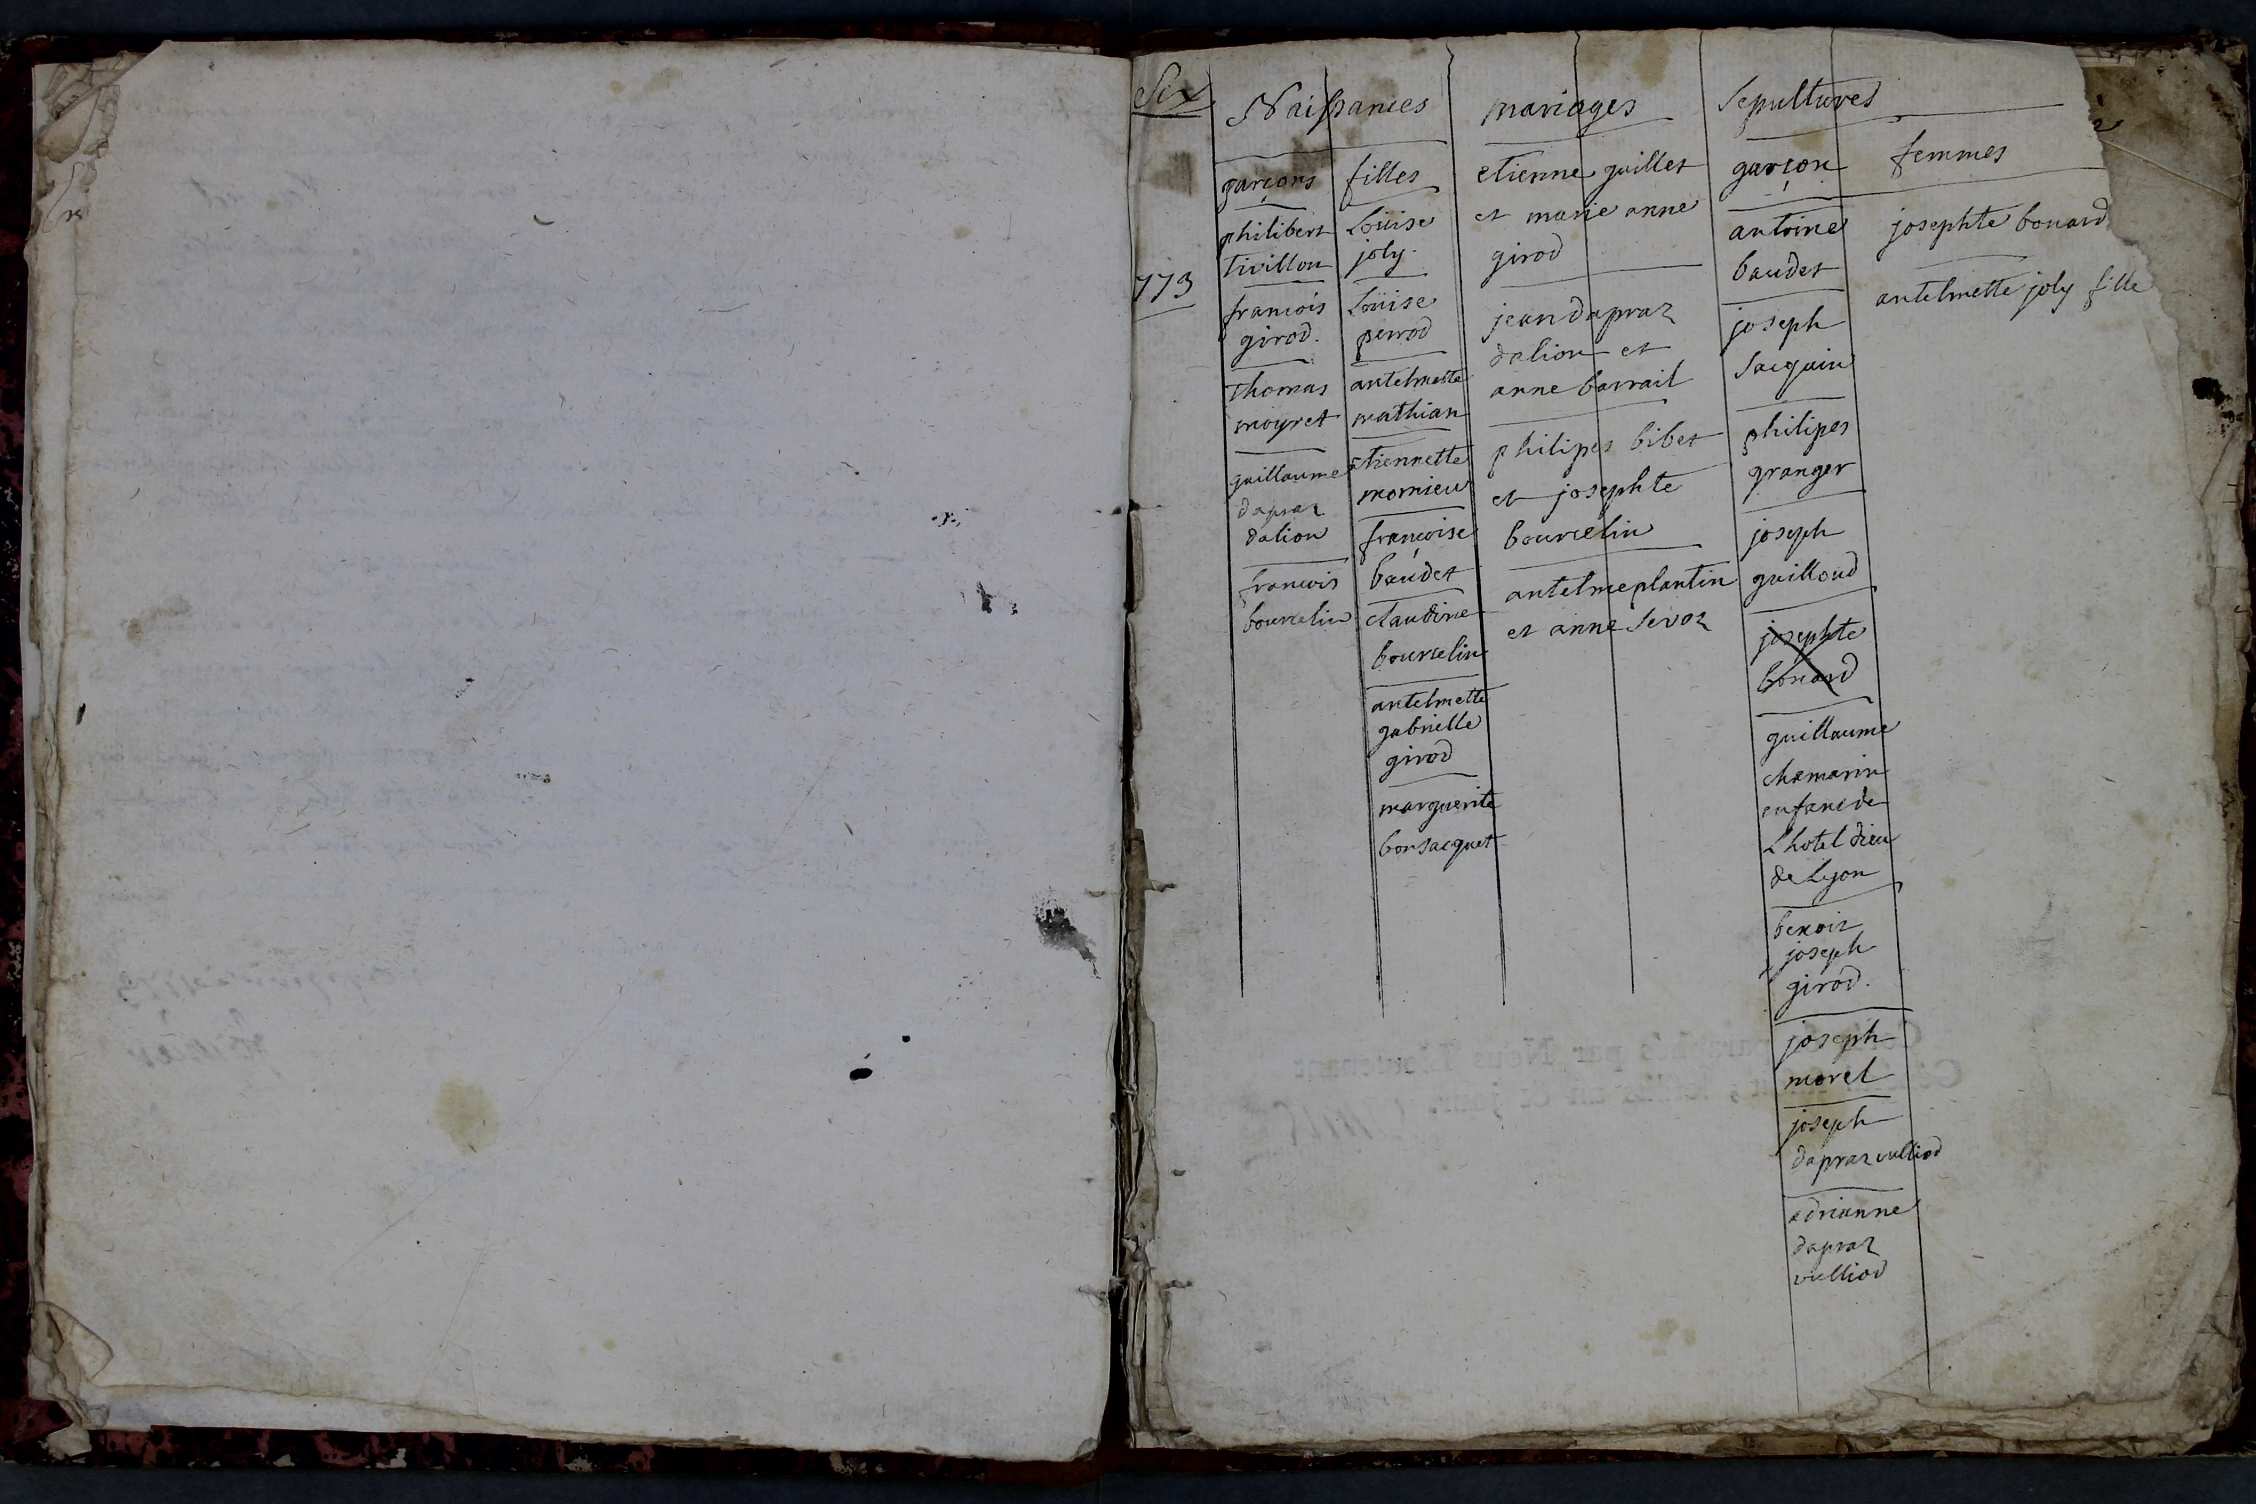 Six
Naissances
mariages
Sepultures
773
garçons
philibert
tivillon
françois
girod.
thomas
moyret
guillaume
dapraz
dalion
francois
bourcelin
filles
Loüise
joly.
Loüise
perrod
antelmette
mathian
etiennette
mornieu
françoise
baudet
claudine
bourcelin
antelmette
gabrielle
girod
marguerite
bonsacquet
etienne guillet
et marie anne
girod
jean dapraz
dalion et
anne barrail
philipes bibet
et josephte
bourcelin
antelme plantin
et anne Sevoz
garçon
antoine
baudet
joseph
Sacquin
philipes
granger
joseph
guilloud
josephte
bonard
guillaume
chamarin
enfant de
L'hotel dieu
de Lyon
benoit
joseph
girod.
joseph
morel
joseph
dapraz vulliod
adrianne
dapraz
vulliod
femmes
josephte bonard
antelmette joly fille